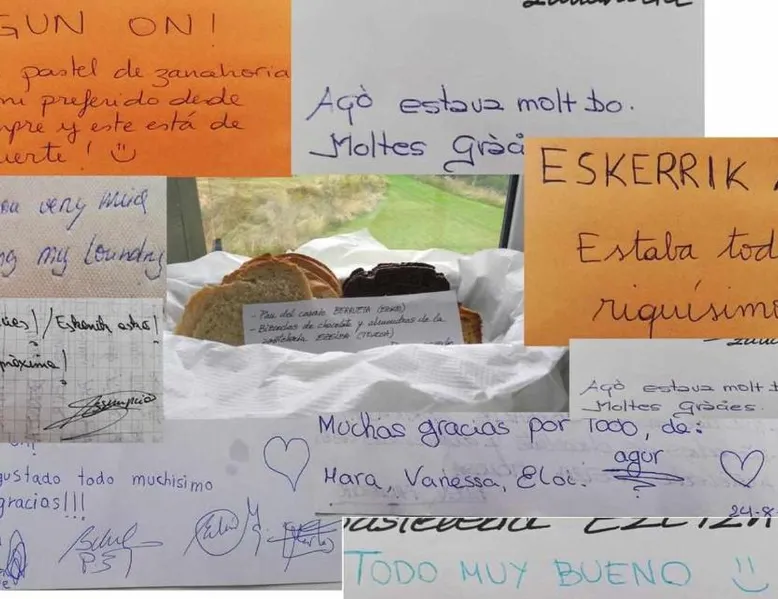 GUN ON!
pastel de zanahoria
mi preferido desde
y este está de
!
Açò estava molt bo.
Moltes Gràci
ESKERRIK
Estaba tod
riquísimo
you very much
my laundry
/ Eskerrik asko!
próxima!
- Pan del caserío BERRUETA (ERRO)
- Bizcochos de chocolate y almendras de la
pastelería EZELTZA (
Açò estava molt b
Moltes Gràcies.
Muchas gracias por todo, de:
Mara, Vanessa, Eloi.
agur
24-8-
gustado todo muchisimo
gracias!!!
TODO MUY BUENO